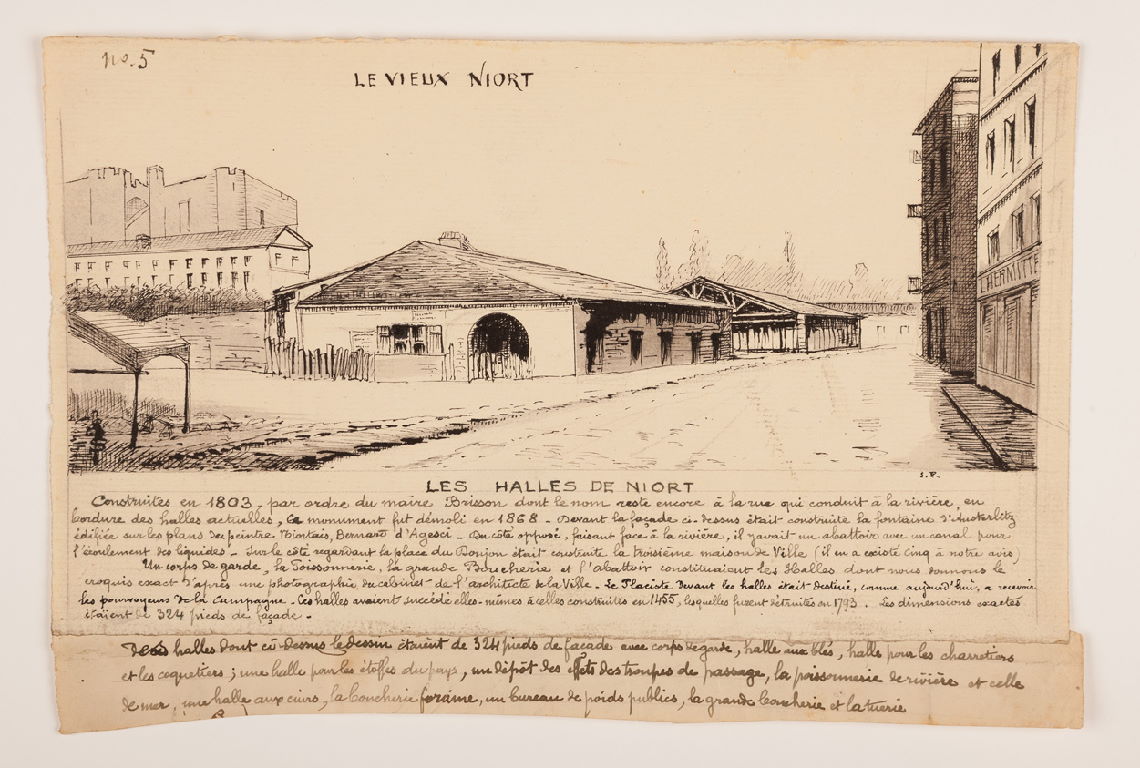 no. 5
LE VIEUX NIORT
LHERMITTE
LES HALLES DE NIORT
Construites en 1803, par ordre du maire Brisson dont le nom reste encore à la rue qui conduit à la rivière, en
bordure des halles actuelles, ce monument fut démoli en 1868 - Devant la façade ci-dessus était construite la fontaine d'Austerlitz
édifiée sur les plans du peintre Niortais, Bernard d'Agesci - Du côté opposé, faisant face à la rivière, il y avait un abattoir avec un canal pour
l'écoulement des liquides - Sur le côté regardant la place du Donjon était construite la troisième maison de Ville (il en a existé cinq à notre avis)
Un corps de garde, la Poissonnerie, la grande Boucherie et l'abattoir constituaient les Halles dont nous donnons le
croquis exact d'après une photographie du cabinet de l'architecte de la Ville - Le Placiste devant les halles était destiné, comme aujourd'hui, à recevoir
les pourvoyeurs de la campagne. Ces halles avaient succédé elles-mêmes à celles construites en 1455, lesquelles furent détruites en 1793. Les dimensions exactes
étaient de 324 pieds de façade.
halles dont ci-dessus le dessin étaient de 324 pieds de façade avec corps de garde, halle aux blés, halle pour les charretiers
et les coquetiers; une halle pour les étoffes du pays, un dépôt des effets des troupes de passage, la poissonnerie de rivière et celle
de mer, une halle aux cuirs, la boucherie foraine, un bureau de poids publics, la grande boucherie et la tuerie